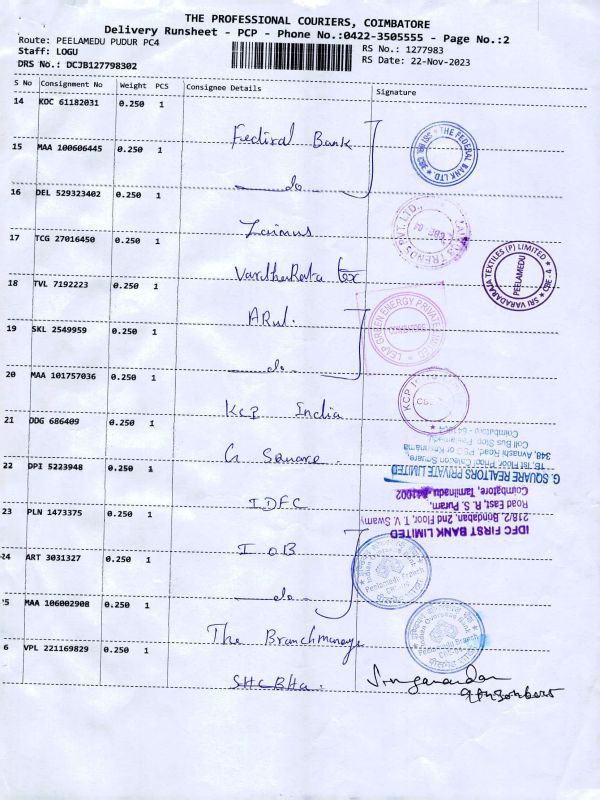 THE PROFESSIONAL COURIERS, COIMBATORE
Delivery Runsheet - PCP - Phone No.:0422-3505555 - Page No.:2
Route: PEELAMEDU PUDUR PC4
RS No.: 1277983
Staff: LOGU
RS Date: 22-Nov-2023
DRS No.: DCJB127798302
S No Consignment No Weight PCS Consignee Details Signature
14 KOC 61182031 0.250 1
Fediral Bank
THE FEDERAL BANK LTD.
15 MAA 100606445 0.250 1
do
16 DEL 529323402 0.250 1
17 TCG 27016450 0.250 1
SRI VARADARAJA TEXTILES (P) LIMITED
PEELAMEDU
CBE-4
18 TVL 7192223 0.250 1
ARul.
LEAP GREEN ENERGY PRIVATE
19 SKL 2549959 0.250 1
do.
20 MAA 101757036 0.250 1
KCP India
21 DDG 686409 0.250 1
G Square
G. SQUARE REALTORS PRIVATE LIMITED
348, Avinashi Road,
Coimbatore
22 DPI 5223948 0.250 1
IDFC
IDFC FIRST BANK LIMITED
218/2, Bondaban, 2nd Floor, T. V. Swamy
Road East, R. S. Puram,
Coimbatore, Taminadu 641002
23 PLN 1473375 0.250 1
IOB
Indian Overseas Bank
Peelamedu Branch
24 ART 3031327 0.250 1
do.
5 MAA 106002908 0.250 1
The Branch manager
Indian Overseas Bank
6 VPL 221169829 0.250 1